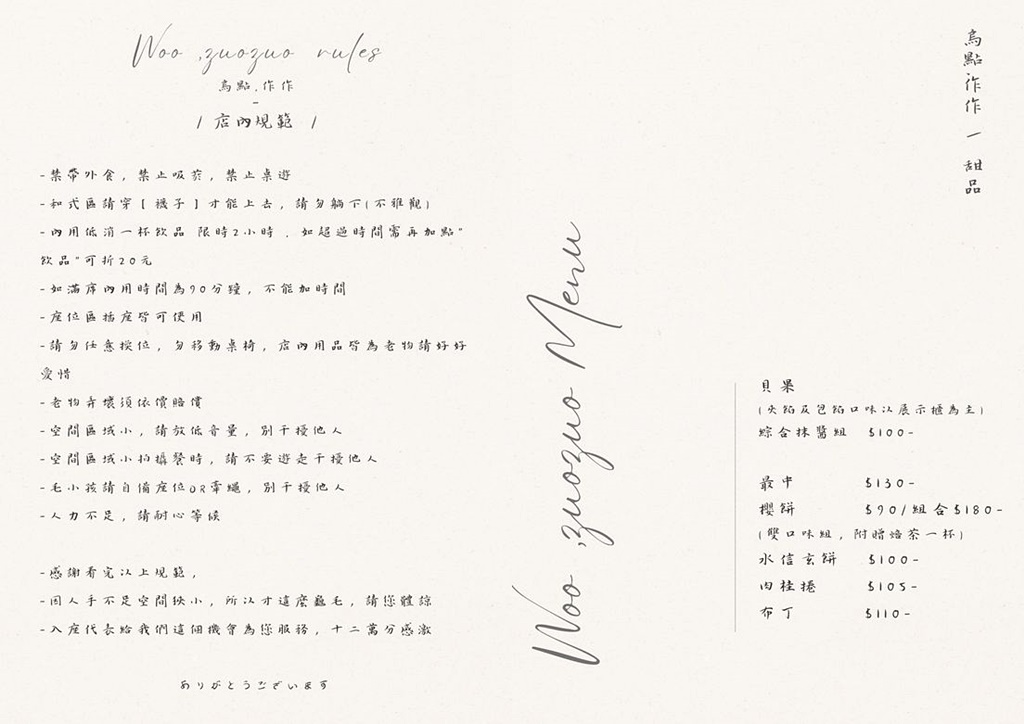 Woo ,zuozuo rules
烏點.作作
-
/ 店內規範 /
-禁帶外食,禁止吸菸,禁止桌遊
-和式區請穿【襪子】才能上去,請勿躺下(不雅觀)
-內用低消一杯飲品 限時2小時 . 如超過時間需再加點"
飲品"可折20元
-如滿席內用時間為90分鐘,不能加時間
-座位區插座皆可使用
-請勿任意換位,勿移動桌椅,店內用品皆為老物請好好
愛惜
-老物弄壞須依價賠償
-空間區域小,請放低音量,別干擾他人
-空間區域小拍攝餐時,請不要遊走干擾他人
-毛小孩請自備座位OR牽繩,別干擾他人
-人力不足,請耐心等候
-感謝看完以上規範,
-因人手不足空間狹小,所以才這麼龜毛,請您體諒
-入座代表給我們這個機會為您服務,十二萬分感激
ありがとうございます
Woo ,zuozuo Menu
烏點.作作 — 甜品
貝果
(夾餡及包餡口味以展示櫃為主)
綜合抹醬組 $100-
最中 $130-
櫻餅 $90/組合$180-
(雙口味組,附贈焙茶一杯)
水信玄餅 $100-
肉桂捲 $105-
布丁 $110-